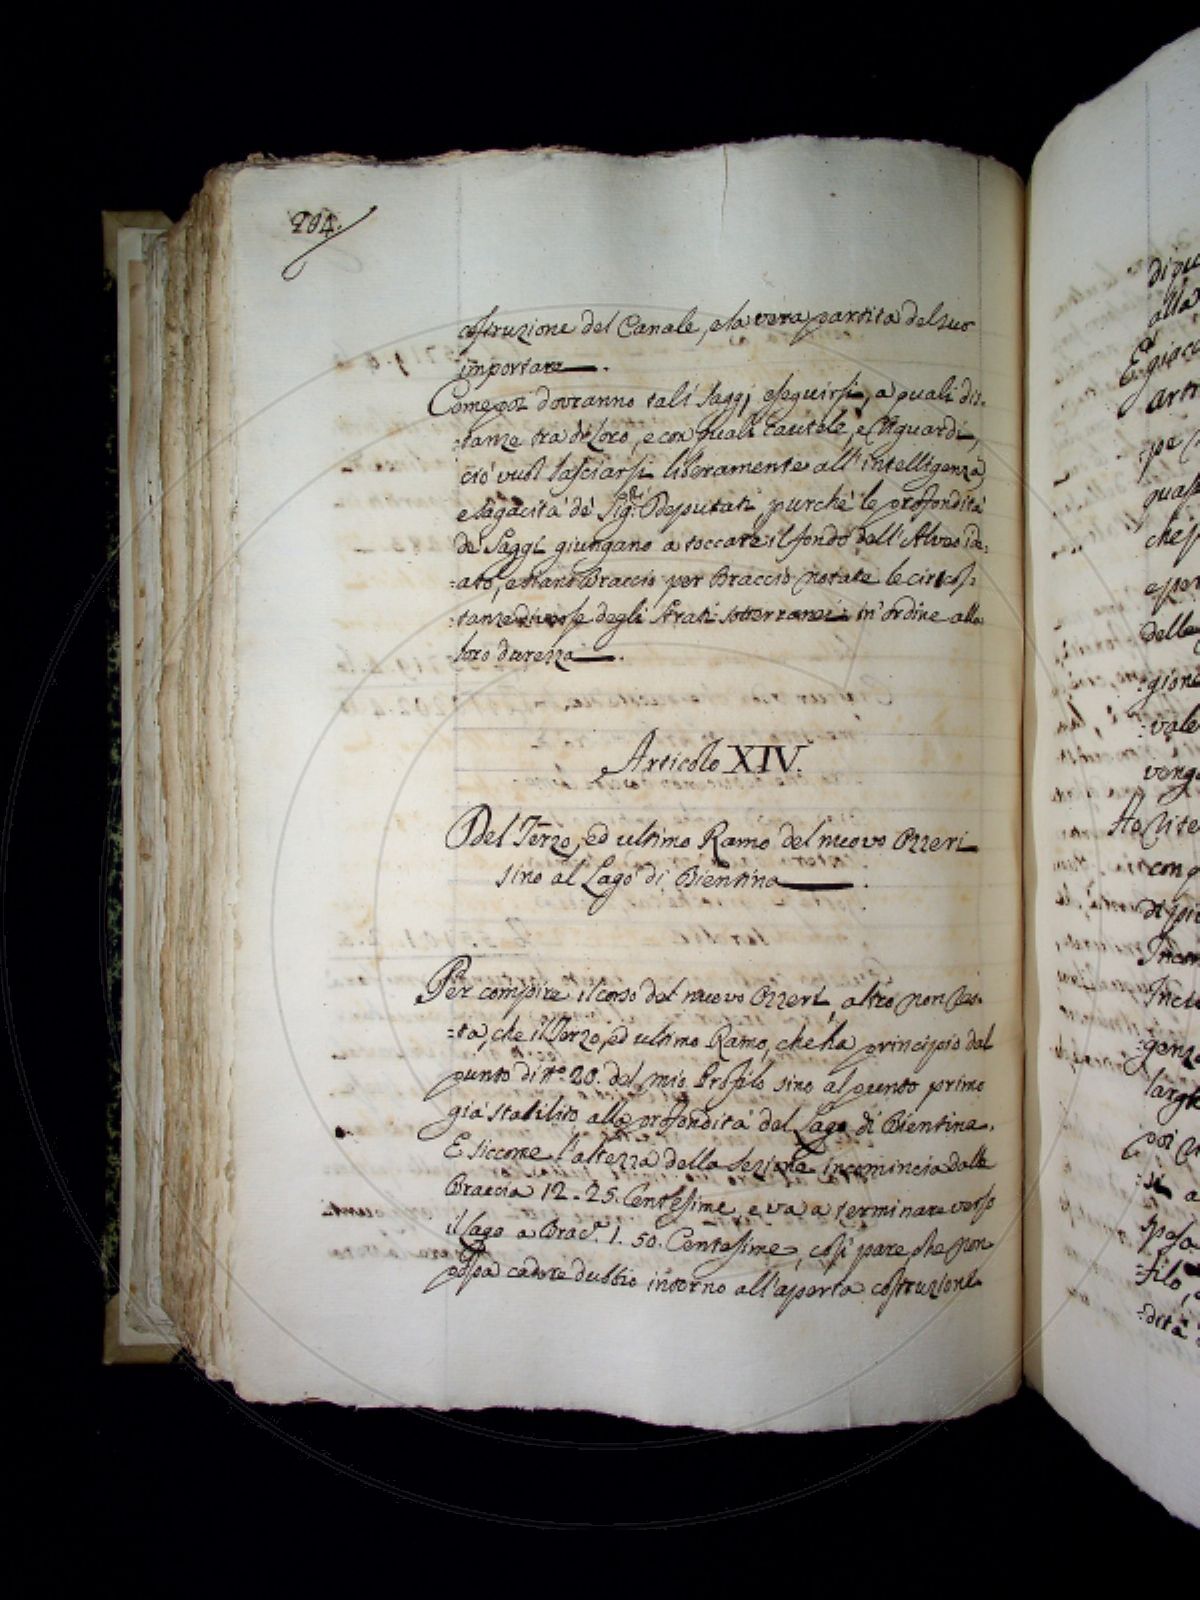 204.
costruzione del Canale, e la vera partita del suo
importare.
Come poi dovranno tali Saggj eseguirsi, a quali dis:
:tanze tra di loro, e con quali Cautele, e Riguardi,
ciò vuol lasciarsi liberamente all'intelligenza,
e sagacità de' Sig.ri Deputati, purchè le profondità
de Saggi giungano a toccare il fondo dell'Alveo ide:
:ato, e siano Braccio per Braccio notate le circos:
:tanze diverse degli Strati sotterranei in ordine alla
loro durezza.
Articolo XIV.
Del Terzo, ed ultimo Ramo del nuovo Ozzeri
sino al Lago di Bientina.
Per compire il corso del nuovo Ozzeri, altro non res:
:ta, che il Terzo, ed ultimo Ramo, che ha principio dal
punto di n.o 20. del mio Profilo sino al punto primo
già stabilito alla profondità del Lago di Bientina.
E siccome l'altezza della Sezione incomincia dalle
Braccia 12.25. Centesime, e va a terminare verso
il Lago a Brac.a 1.50. Centesime, così pare che non
possa cadere dubbio intorno all'aperta costruzione
di
alla
giaca
arti
pe
quas
che
e per
della
:gione
:vale
venga
con
Incon
:genza
larg
poi
:si a
spesa
:filo,
:dità